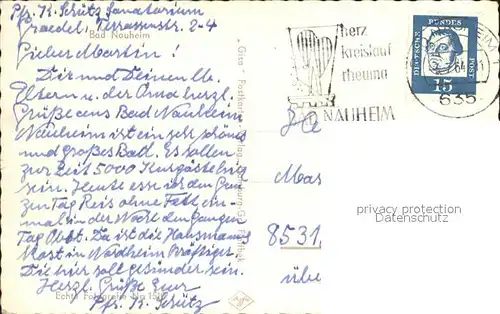 Pfr. K. Schütz Sanatorium
Graedel, Terrassenstr. 2-4
Bad Nauheim
Lieber Martin!
Dir und Deinen lb.
Eltern u. der Oma herzl.
Grüße aus Bad Nauheim
Nauheim ist ein sehr schönes
und großes Bad. Es sollen
zur Zeit 5000 Kurgäste hier
sein. Heute esse ich den ganzen
Tag Reis ohne Fett, ein-
mal in der Woche den ganzen
Tag Obst. Da ist die Hausmanns
Kost in Nordheim kräftiger.
Die hier soll gesünder sein.
Herzl. Grüße Euer
Pfr. K. Schütz
Echte Fotografie
herz
kreislauf
rheuma
NAUHEIM
DEUTSCHE
BUNDES
POST
15
635
8531
privacy protection
Datenschutz